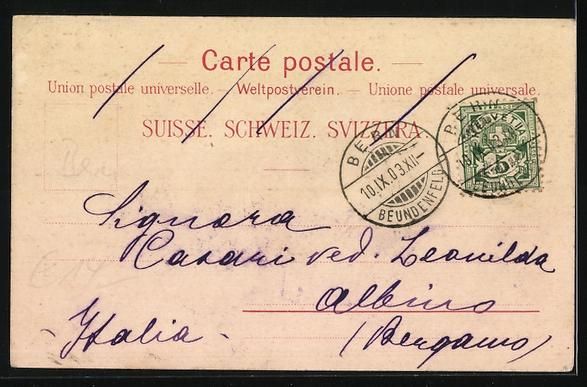 Carte postale.
Union postale universelle. — Weltpostverein. — Unione postale universale.
SUISSE. SCHWEIZ. SVIZZERA
BERN
10.IX.03.XII—
BEUNDENFELD
HELVETIA
5
Signora
Casari ved. Leonilda
Albino
(Bergamo)
- Italia -